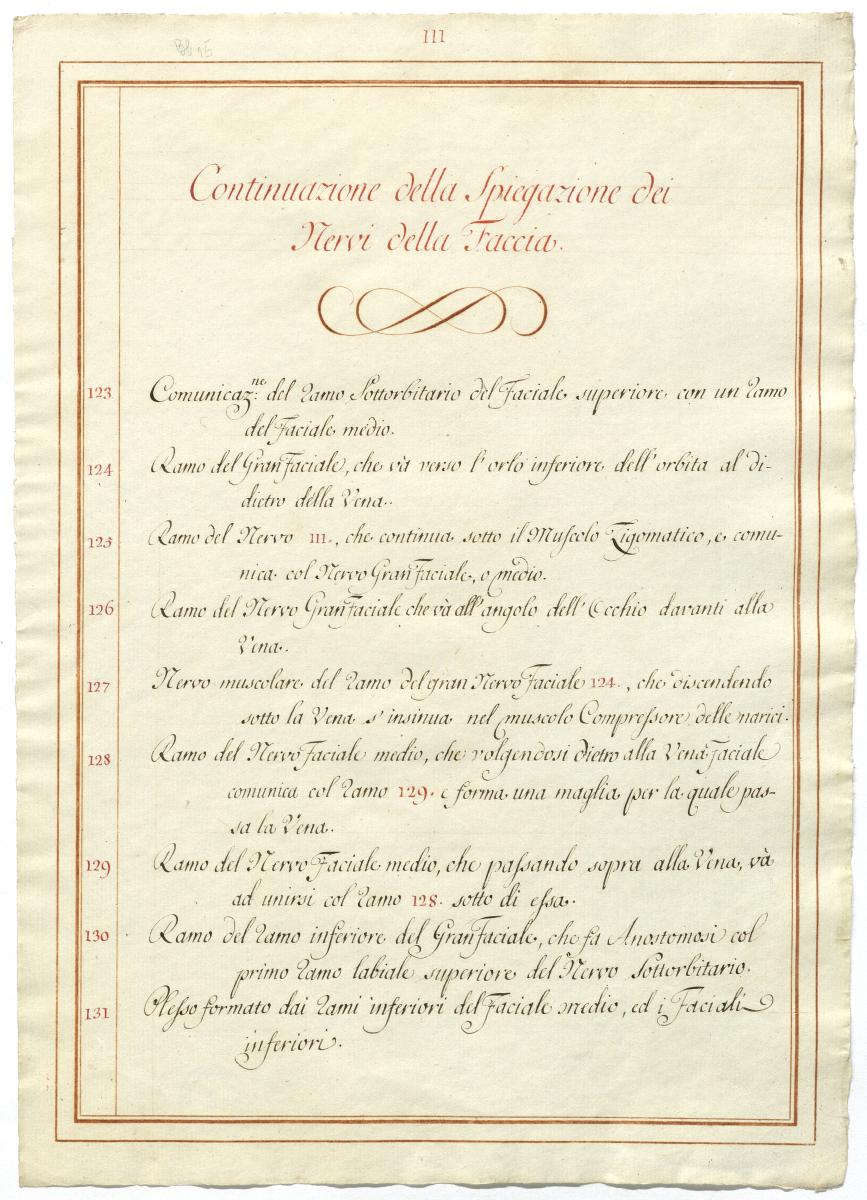 III
Continuazione della Spiegazione dei
Nervi della Faccia.
123 Comunicaz.ne del Ramo Sottorbitario del Faciale superiore con un Ramo
del Faciale medio.
124 Ramo del Gran Faciale, che và verso l'orlo inferiore dell'orbita al di-
dietro della Vena.
125 Ramo del Nervo 111., che continua sotto il Muscolo Zigomatico, e comu-
nica col Nervo Gran Faciale, o medio.
126 Ramo del Nervo Gran Faciale che và all'angolo dell'Occhio davanti alla
Vena.
127 Nervo muscolare del Ramo del gran Nervo Faciale 124., che discendendo
sotto la Vena s'insinua nel muscolo Compressore delle narici.
128 Ramo del Nervo Faciale medio, che volgendosi dietro alla Vena Faciale
comunica col Ramo 129. e forma una maglia per la quale pas-
sa la Vena.
129 Ramo del Nervo Faciale medio, che passando sopra alla Vena, và
ad unirsi col Ramo 128. sotto di essa.
130 Ramo del Ramo inferiore del Gran Faciale, che fa Anostomosi col
primo Ramo labiale superiore del Nervo Sottorbitario.
131 Plesso formato dai Rami inferiori del Faciale medio, ed i Faciali
inferiori.